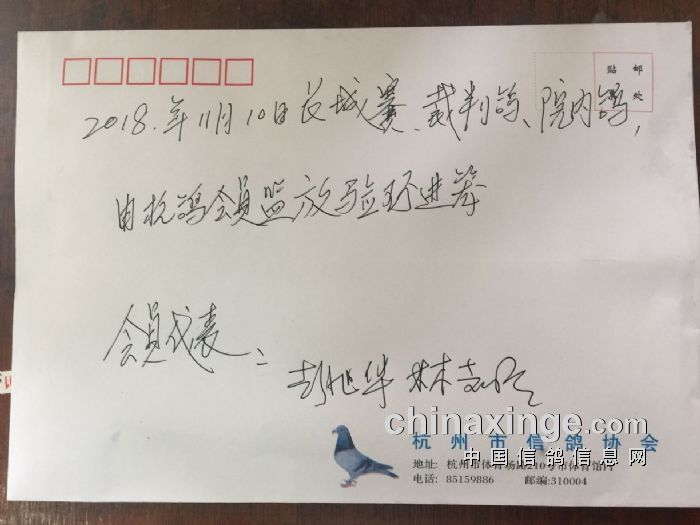 贴 邮
处
2018.年11月10日长城赛、裁判鸽、院内鸽,
由杭鸽会员监放验环进笼
会员代表:
彭旭华 林志明
chinaxinge.com
杭州市信鸽协会
中国信鸽信息网
地址: 杭州市体育场路210号市体育馆内
电话: 85159886 邮编:310004